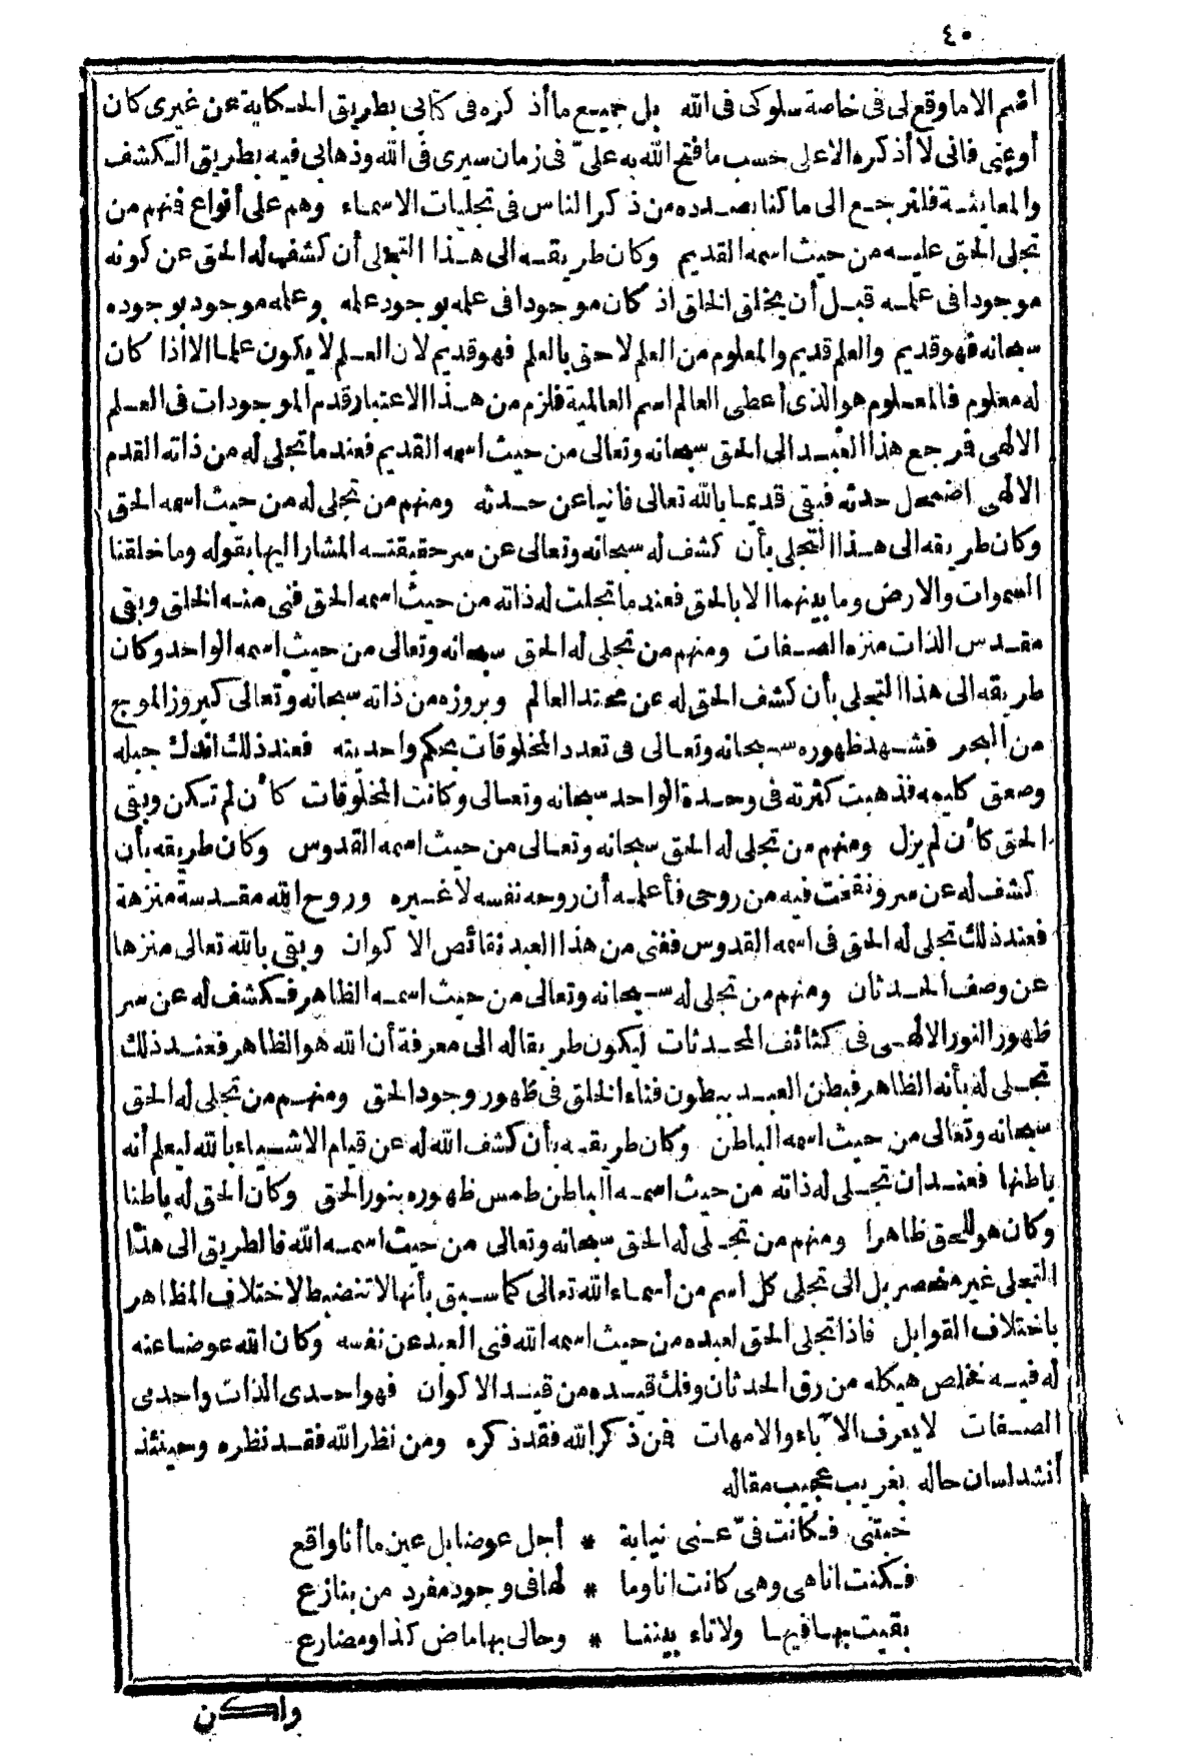 ٤٠
افهم الا ما وقع لى فى خاصة سلوكى فى الله بل جميع ما أذكره فى كتابى بطريق الحكاية عن غيرى كان
أو عنى فانى لا أذكره الا على حسب ما فتح الله به علىّ فى زمان سيرى فى الله وذهابى فيه بطريق الكشف
والمعاينة فلنرجع الى ما كنا بصدده من ذكر الناس فى تجليات الاسماء وهم على أنواع فنهم من
تجلى الحق عليه من حيث اسمه القديم وكان طريقه الى هذا التجلى أن كشف له الحق عن كونه
موجودا فى علمه قبل أن يخلق الخلق اذ كان موجودا فى علمه بوجود علمه وعلمه موجود بوجوده
سبحانه فهو قديم والعلم قديم والمعلوم من العلم لاحق بالعلم فهو قديم لان العلم لا يكون علما الا اذا كان
له معلوم فالمعلوم هو الذى أعطى العالم اسم العالمية فلزم من هذا الاعتبار قدم الموجودات فى العلم
الالهى فرجع هذا العبد الى الحق سبحانه وتعالى من حيث اسمه القديم فعند ما تجلى له من ذاته القدم
الالهى اضمحل حدثه فبقى قديما بالله تعالى فانيا عن حدثه ومنهم من تجلى له من حيث اسمه الحق
وكان طريقه الى هذا التجلى بأن كشف له سبحانه وتعالى عن سر حقيقته المشار اليها بقوله وما خلقنا
السموات والارض وما بينهما الا بالحق فعند ما تجلت له ذاته من حيث اسمه الحق فنى منه الخلق وبقى
مقدس الذات منزه الصفات ومنهم من تجلى له الحق سبحانه وتعالى من حيث اسمه الواحد وكان
طريقه الى هذا التجلى بأن كشف الحق له عن محتد العالم وبروزه من ذاته سبحانه وتعالى كبروز الموج
من البحر فشهد ظهوره سبحانه وتعالى فى تعدد المخلوقات بحكم واحديته فعند ذلك اندك جبله
وصعق كليمه فذهبت كثرته فى وحدة الواحد سبحانه وتعالى وكانت المخلوقات كأن لم تكن وبقى
الحق كأن لم يزل ومنهم من تجلى له الحق سبحانه وتعالى من حيث اسمه القدوس وكان طريقه بأن
كشف له عن سر ونفخت فيه من روحى فأعلمه أن روحه نفسه لا غيره وروح الله مقدسة منزهة
فعند ذلك تجلى له الحق فى اسمه القدوس ففنى من هذا العبد نقائص الاكوان وبقى بالله تعالى منزها
عن وصف الحدثان ومنهم من تجلى له سبحانه وتعالى من حيث اسمه الظاهر فكشف له عن سر
ظهور النور الالهى فى كثائف المحدثات ليكون طريقا له الى معرفة أن الله هو الظاهر فعند ذلك
تجلى له بأنه الظاهر فبطن العبد ببطون فناء الخلق فى ظهور وجود الحق ومنهم من تجلى له الحق
سبحانه وتعالى من حيث اسمه الباطن وكان طريقه بأن كشف الله له عن قيام الاشياء بالله ليعلم أنه
باطنها فعند ان تجلى له ذاته من حيث اسمه الباطن طمس ظهوره بنور الحق وكان الحق له باطنا
وكان هو للحق ظاهرا ومنهم من تجلى له الحق سبحانه وتعالى من حيث اسمه الله فالطريق الى هذا
التجلى غير منحصر بل الى تجلى كل اسم من أسماء الله تعالى كما سبق بأنها لا تنضبط لاختلاف المظاهر
باختلاف القوابل فاذا تجلى الحق لعبده من حيث اسمه الله فنى العبد عن نفسه وكان الله عوضا عنه
له فيه فخلص هيكله من رق الحدثان وفك قيده من قيد الاكوان فهو احدى الذات واحدى
الصفات لا يعرف الآباء والامهات فمن ذكر الله فقد ذكره ومن نظر الله فقد نظره وحينئذ
أنشد لسان حاله بغريب عجيب مقاله
خبتنى فكانت فىّ عنى نيابة * أجل عوضا بل عين ما أنا واقع
فكنت انا هى وهى كانت انا وما * لها فى وجود مفرد من ينازع
بقيت بها فيها ولا تاء بيننا * وحالى بها ماض كذا ومضارع
ولكن